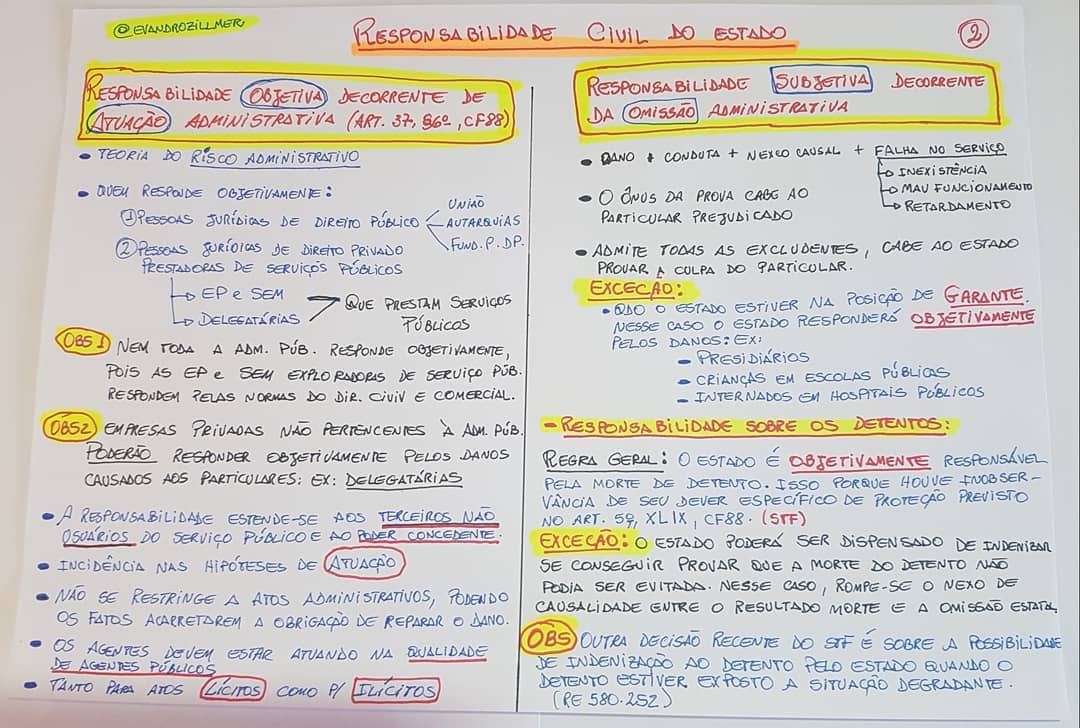 @EVANDROZILLMER
RESPONSABILIDADE CIVIL DO ESTADO
2
RESPONSABILIDADE OBJETIVA DECORRENTE DE
ATUAÇÃO ADMINISTRATIVA (ART. 37, §6º, CF88)
• TEORIA DO RISCO ADMINISTRATIVO
• QUEM RESPONDE OBJETIVAMENTE:
① PESSOAS JURÍDICAS DE DIREITO PÚBLICO
UNIÃO
AUTARQUIAS
FUND. P. DP.
② PESSOAS JURÍDICAS DE DIREITO PRIVADO
PRESTADORAS DE SERVIÇOS PÚBLICOS
EP e SEM
DELEGATÁRIAS
QUE PRESTAM SERVIÇOS
PÚBLICOS
OBS 1 NEM TODA A ADM. PÚB. RESPONDE OBJETIVAMENTE,
POIS AS EP e SEM EXPLORADORAS DE SERVIÇO PÚB.
RESPONDEM PELAS NORMAS DO DIR. CIVIV E COMERCIAL.
OBS2 EMPRESAS PRIVADAS NÃO PERTENCENTES À ADM. PÚB.
PODERÃO RESPONDER OBJETIVAMENTE PELOS DANOS
CAUSADOS AOS PARTICULARES: EX: DELEGATÁRIAS
• A RESPONSABILIDADE ESTENDE-SE AOS TERCEIROS NÃO
USUÁRIOS DO SERVIÇO PÚBLICO E AO PODER CONCEDENTE.
• INCIDÊNCIA NAS HIPÓTESES DE ATUAÇÃO
• NÃO SE RESTRINGE A ATOS ADMINISTRATIVOS, PODENDO
OS FATOS ACARRETAREM A OBRIGAÇÃO DE REPARAR O DANO.
• OS AGENTES DEVEM ESTAR ATUANDO NA QUALIDADE
DE AGENTES PÚBLICOS
• TANTO PARA ATOS LÍCITOS COMO P/ ILÍCITOS
RESPONSABILIDADE SUBJETIVA DECORRENTE
DA OMISSÃO ADMINISTRATIVA
• DANO + CONDUTA + NEXO CAUSAL + FALHA NO SERVIÇO
INEXISTÊNCIA
MAU FUNCIONAMENTO
RETARDAMENTO
• O ÔNUS DA PROVA CABE AO
PARTICULAR PREJUDICADO
• ADMITE TODAS AS EXCLUDENTES, CABE AO ESTADO
PROVAR A CULPA DO PARTICULAR.
EXCECÃO:
• QDO O ESTADO ESTIVER NA POSIÇÃO DE GARANTE.
NESSE CASO O ESTADO RESPONDERÁ OBJETIVAMENTE
PELOS DANOS: EX:
- PRESIDIÁRIOS
- CRIANÇAS EM ESCOLAS PÚBLICAS
- INTERNADOS EM HOSPITAIS PÚBLICOS
- RESPONSABILIDADE SOBRE OS DETENTOS:
REGRA GERAL: O ESTADO É OBJETIVAMENTE RESPONSÁVEL
PELA MORTE DE DETENTO. ISSO PORQUE HOUVE INOBSER-
VÂNCIA DE SEU DEVER ESPECÍFICO DE PROTEÇÃO PREVISTO
NO ART. 5º, XLIX, CF88. (STF)
EXCECÃO: O ESTADO PODERÁ SER DISPENSADO DE INDENIZAR
SE CONSEGUIR PROVAR QUE A MORTE DO DETENTO NÃO
PODIA SER EVITADA. NESSE CASO, ROMPE-SE O NEXO DE
CAUSALIDADE ENTRE O RESULTADO MORTE E A OMISSÃO ESTATAL
OBS OUTRA DECISÃO RECENTE DO STF É SOBRE A POSSIBILIDADE
DE INDENIZAÇÃO AO DETENTO PELO ESTADO QUANDO O
DETENTO ESTIVER EXPOSTO A SITUAÇÃO DEGRADANTE.
(RE 580.252)